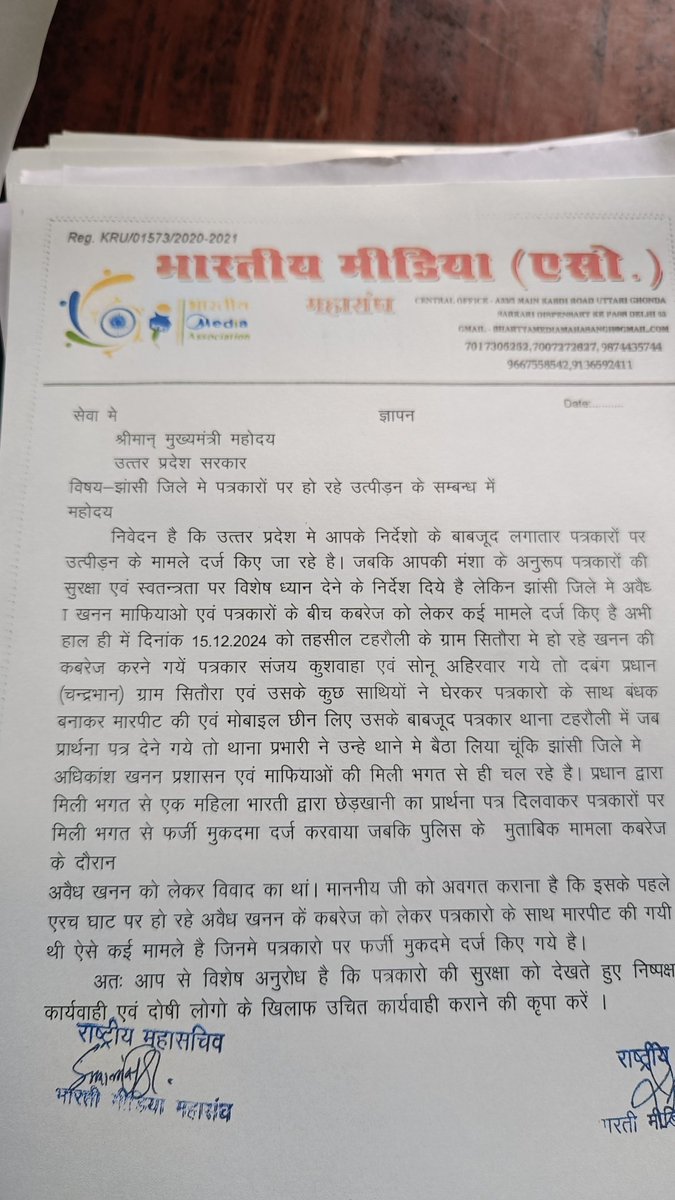 Reg. KRU/01573/2020-2021
भारतीय मीडिया (एसो.)
महासंघ
भारतीत
Media
Association
CENTRAL OFFICE - A55/5 MAIN KARDI ROAD UTTARI GHONDA
SARKARI DISPENSARY KE PASS DELHI 53
GMAIL - BHARTYAMEDIAMAHASANGH@GMAIL.COM
7017305252, 7007272627, 9874435744
9667558542, 9136592411
Date:..........
सेवा मे ज्ञापन
श्रीमान् मुख्यमंत्री महोदय
उत्तर प्रदेश सरकार
विषय–झांसी जिले मे पत्रकारों पर हो रहे उत्पीड़न के सम्बन्ध में
महोदय
निवेदन है कि उत्तर प्रदेश मे आपके निर्देशो के बाबजूद लगातार पत्रकारों पर
उत्पीड़न के मामले दर्ज किए जा रहे है। जबकि आपकी मंशा के अनुरूप पत्रकारों की
सुरक्षा एवं स्वतन्त्रता पर विशेष ध्यान देने के निर्देश दिये है लेकिन झांसी जिले मे अवैध
ा खनन माफियाओ एवं पत्रकारों के बीच कबरेज को लेकर कई मामले दर्ज किए है अभी
हाल ही में दिनांक 15.12.2024 को तहसील टहरौली के ग्राम सितौरा मे हो रहे खनन की
कबरेज करने गयें पत्रकार संजय कुशवाहा एवं सोनू अहिरवार गये तो दबंग प्रधान
(चन्द्रभान) ग्राम सितौरा एवं उसके कुछ साथियों ने घेरकर पत्रकारो के साथ बंधक
बनाकर मारपीट की एवं मोबाइल छीन लिए उसके बाबजूद पत्रकार थाना टहरौली में जब
प्रार्थना पत्र देने गये तो थाना प्रभारी ने उन्हे थाने मे बैठा लिया चूंकि झांसी जिले मे
अधिकांश खनन प्रशासन एवं माफियाओं की मिली भगत से ही चल रहे है। प्रधान द्वारा
मिली भगत से एक महिला भारती द्वारा छेड़खानी का प्रार्थना पत्र दिलवाकर पत्रकारों पर
मिली भगत से फर्जी मुकदमा दर्ज करवाया जबकि पुलिस के मुताबिक मामला कबरेज
के दौरान
अवैध खनन को लेकर विवाद का थां। माननीय जी को अवगत कराना है कि इसके पहले
एरच घाट पर हो रहे अवैध खनन कें कबरेज को लेकर पत्रकारो के साथ मारपीट की गयी
थी ऐसे कई मामले है जिनमे पत्रकारो पर फर्जी मुकदमे दर्ज किए गये है।
अतः आप से विशेष अनुरोध है कि पत्रकारो की सुरक्षा को देखते हुए निष्पक्ष
कार्यवाही एवं दोषी लोगो के खिलाफ उचित कार्यवाही कराने की कृपा करें ।
राष्ट्रीय महासचिव
भारती मीडिया महासंघ
राष्ट्रीय